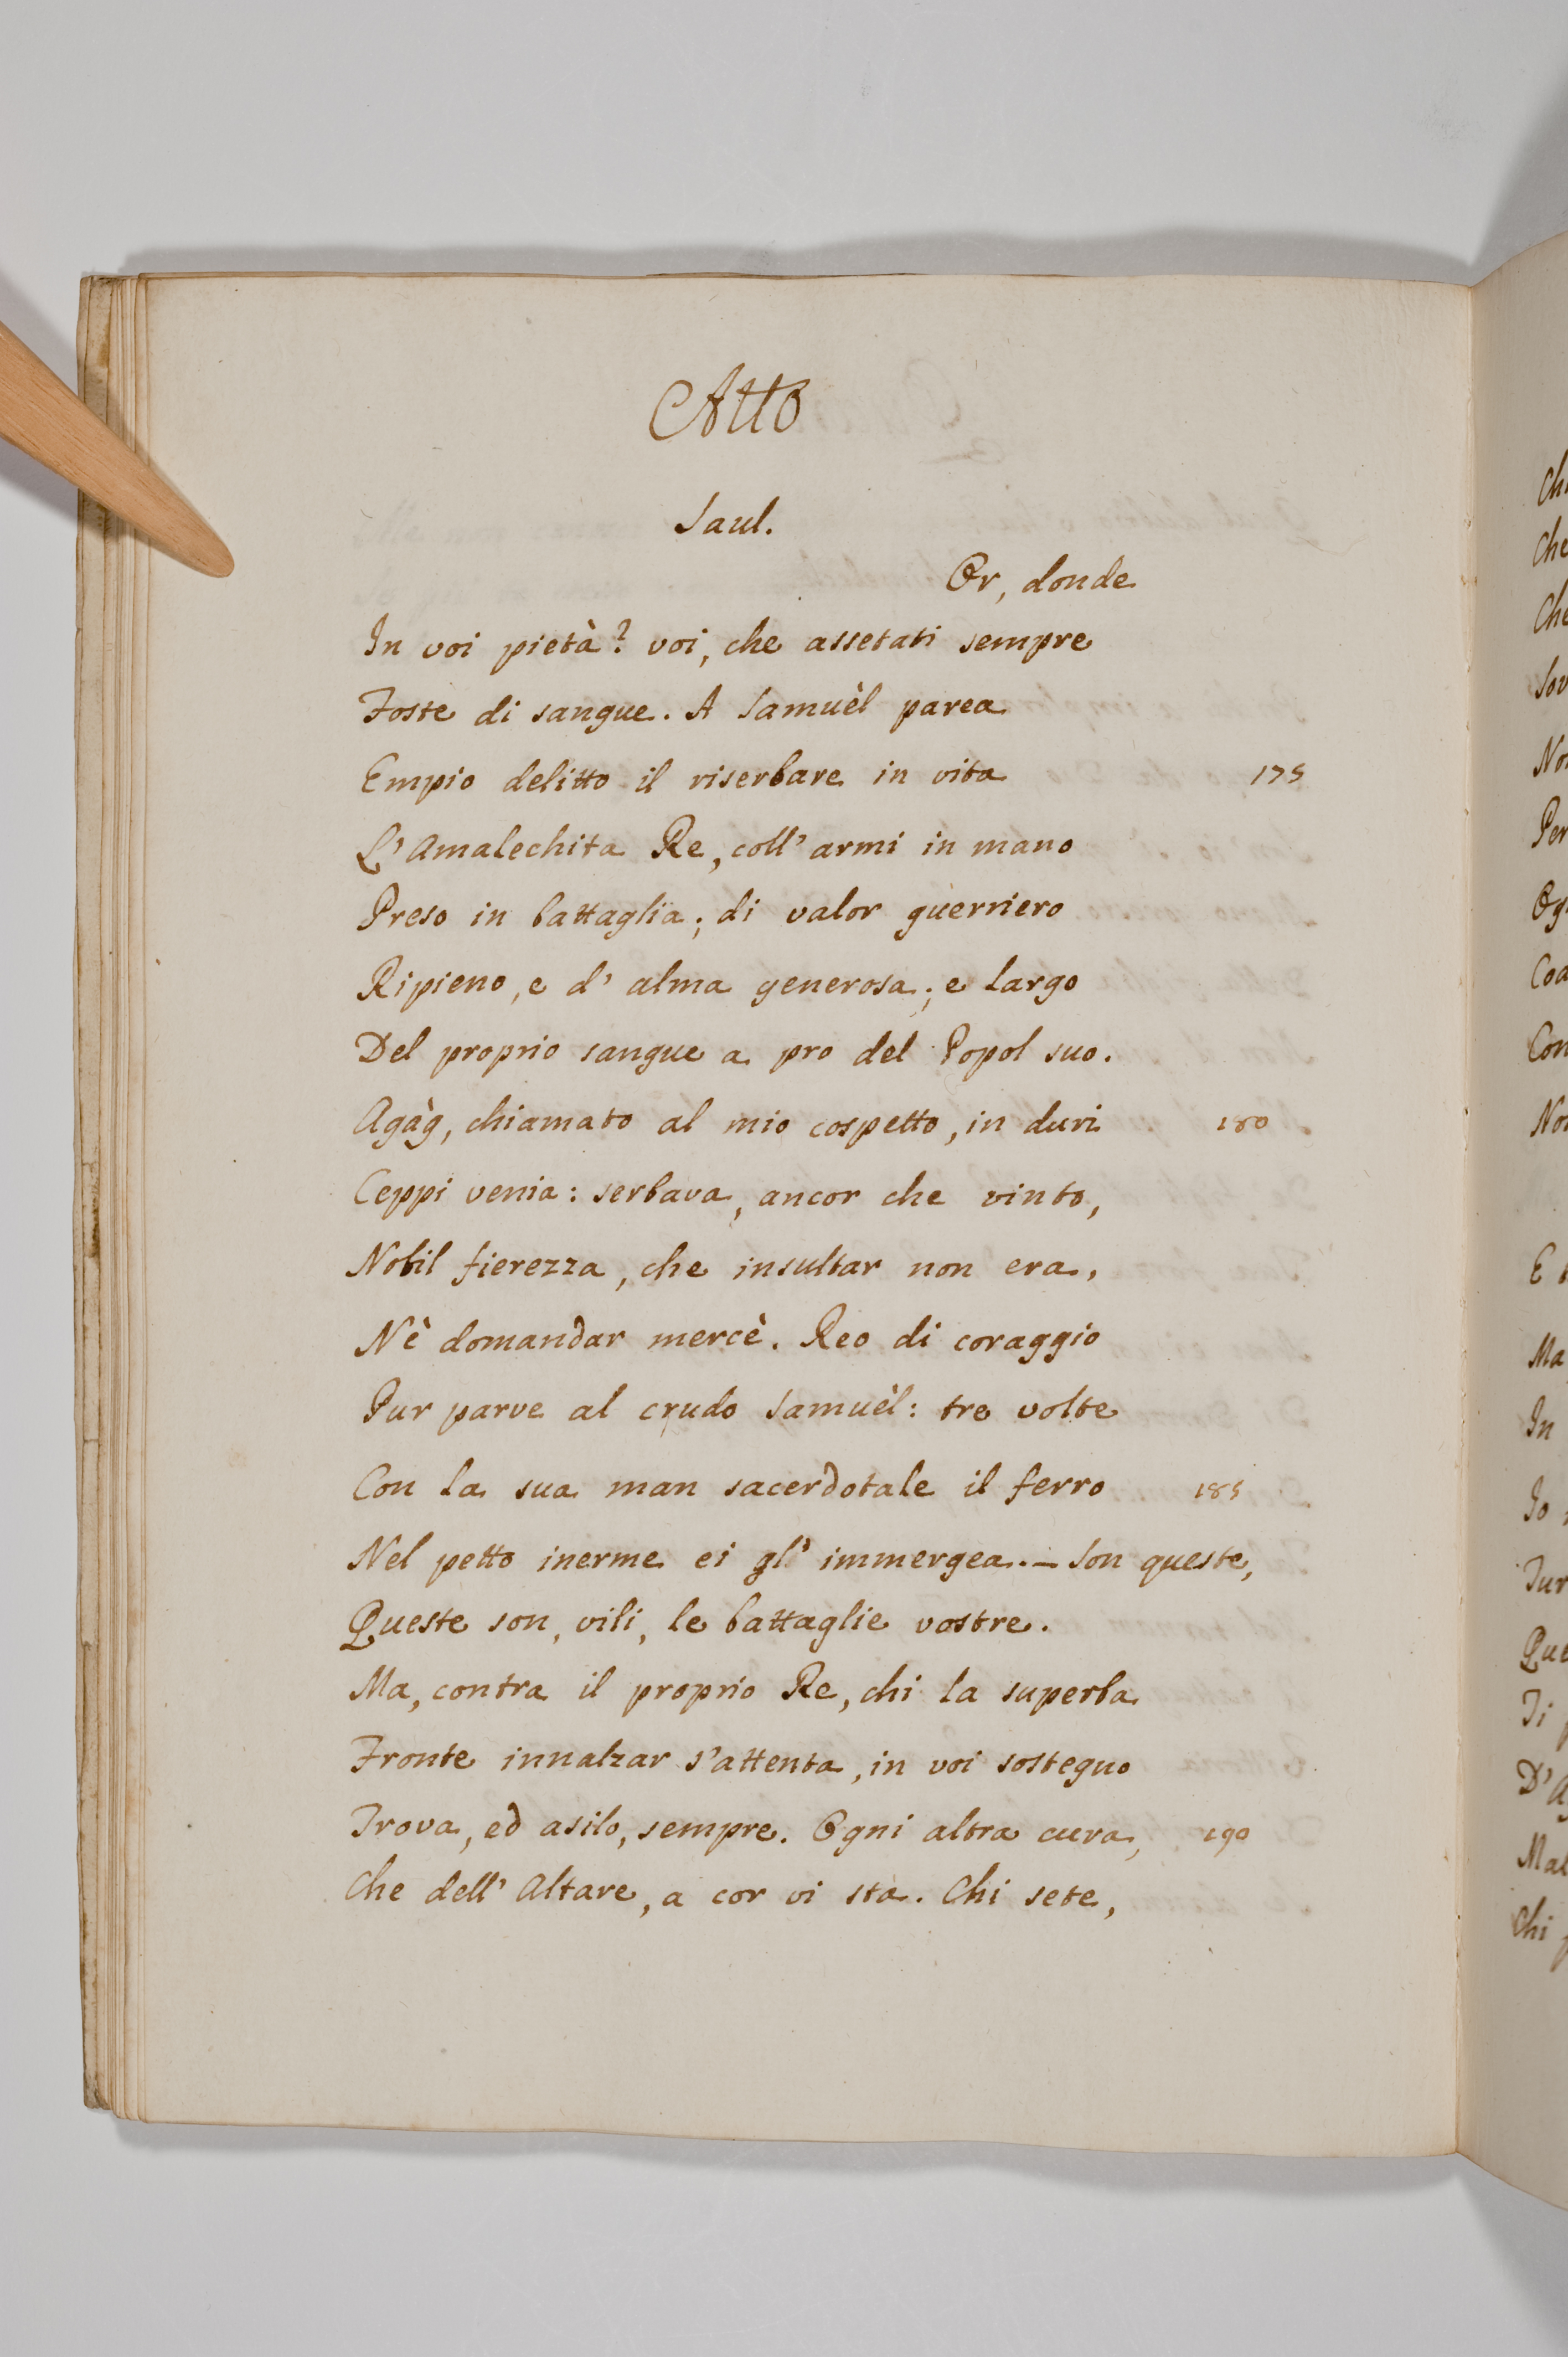 Atto
Saul.
Or, donde
In voi pietà? voi, che assetati sempre
Foste di sangue. A Samuèl parea
Empio delitto il riserbare in vita 175
L'Amalechita Re, coll'armi in mano
Preso in battaglia; di valor guerriero
Ripieno, e d'alma generosa; e largo
Del proprio sangue a pro del Popol suo.
Agàg, chiamato al mio cospetto, in duri 180
Ceppi venia: serbava, ancor che vinto,
Nobil fierezza, che insultar non era,
Nè domandar mercè. Reo di coraggio
Pur parve al crudo Samuèl: tre volte
Con la sua man sacerdotale il ferro 185
Nel petto inerme ei gl'immergea. – Son queste,
Queste son, vili, le battaglie vostre.
Ma, contra il proprio Re, chi la superba
Fronte innalzar s'attenta, in voi sostegno
Trova, ed asilo, sempre. Ogni altra cura, 190
Che dell'Altare, a cor vi sta. Chi sete,
Che
Che
No
Per
Con
E
Ma
In
Io
Chi